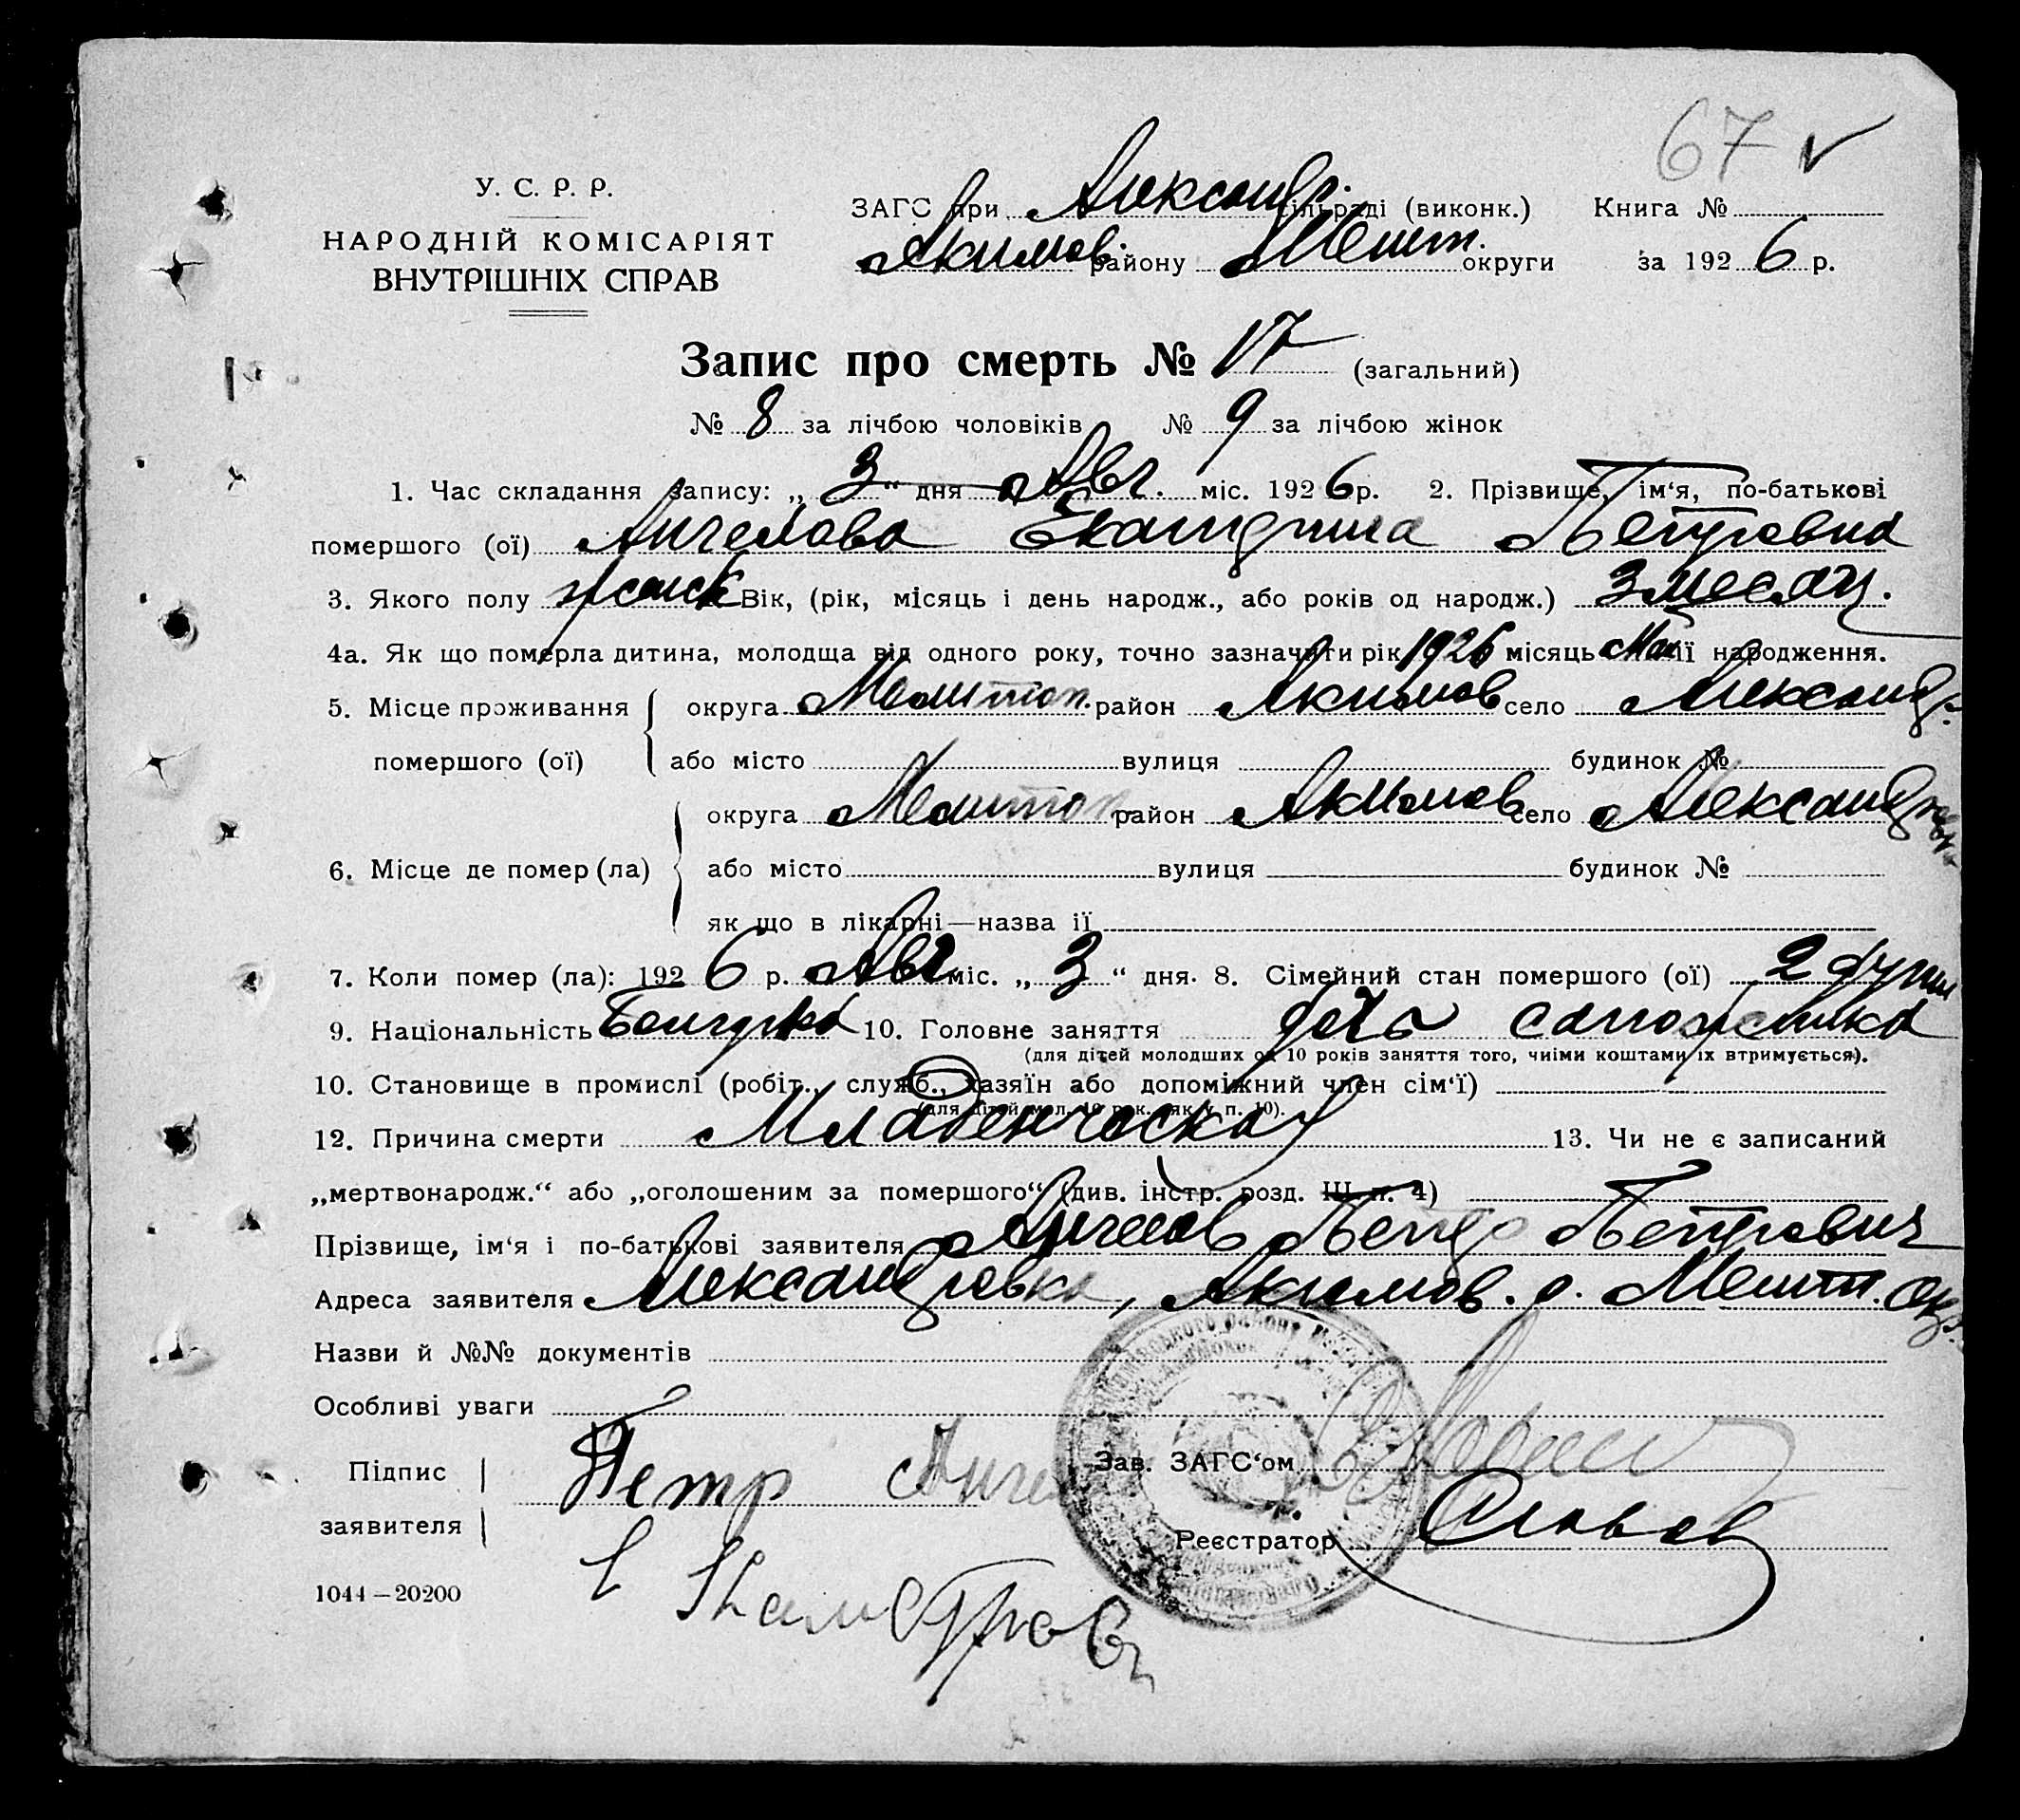 67 ✓
У. С. Р. Р.
НАРОДНІЙ КОМІСАРІЯТ
ВНУТРІШНІХ СПРАВ
ЗАГС при Александр. сільраді (виконк.) Книга №
Акимов. району Мелит. округи за 1926 р.
Запис про смерть № 17 (загальний)
№ 8 за лічбою чоловіків № 9 за лічбою жінок
1. Час складання запису: „3“ дня Авг. міс. 1926 р. 2. Прізвище, ім‘я, по-батькові
помершого (ої) Ангелова Екатерина Петровна
3. Якого полу женск Вік, (рік, місяць і день народж., або років од народж.) 3 месяц.
4а. Як що померла дитина, молодща від одного року, точно зазначити рік 1926 місяць Май її народження.
5. Місце проживання округа Мелитоп. район Акимов село Александр.
помершого (ої) або місто вулиця будинок №
округа Мелитоп район Акимов село Александровк
6. Місце де помер (ла) або місто вулиця будинок №
як що в лікарні—назва її
7. Коли помер (ла): 1926 р. Авг міс. „3“ дня. 8. Сімейний стан помершого (ої) 2 души
9. Національність Болгарка 10. Головне заняття дочь сапожника
(для дітей молодших од 10 років заняття того, чиіми коштами їх втримується).
10. Становище в промислі (робіт., служб., хазяїн або допоміжний член сім‘ї)
(для дітей мол. 10 рок. як у п. 10).
12. Причина смерти Младенческая 13. Чи не є записаний
„мертвонародж.“ або „оголошеним за помершого“ (див. інстр. розд. III п. 4)
Прізвище, ім‘я і по-батькові заявителя Ангелов Петр Петрович
Адреса заявителя Александровка, Акимов. р. Мелит. окр.
Назви й №№ документів
Особливі уваги
Підпис Петр Анге Зав. ЗАГС‘ом
заявителя Реєстратор
1044—20200